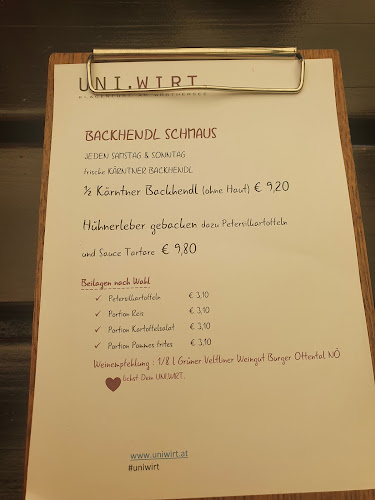 UNI.WIRT
KLAGENFURT AM WÖRTHERSEE
BACKHENDL SCHMAUS
JEDEN SAMSTAG & SONNTAG
frische KÄRNTNER BACKHENDL
½ Kärntner Backhendl (ohne Haut) € 9,20
Hühnerleber gebacken dazu Petersilkartoffeln
und Sauce Tartare € 9,80
Beilagen nach Wahl
✓ Petersilkartoffeln € 3,10
✓ Portion Reis € 3,10
✓ Portion Kartoffelsalat € 3,10
✓ Portion Pommes frites € 3,10
Weinempfehlung : 1/8 L Grüner Veltliner Weingut Burger Ottental NÖ
lichst Dein UNI.WIRT.
www.uniwirt.at
#uniwirt